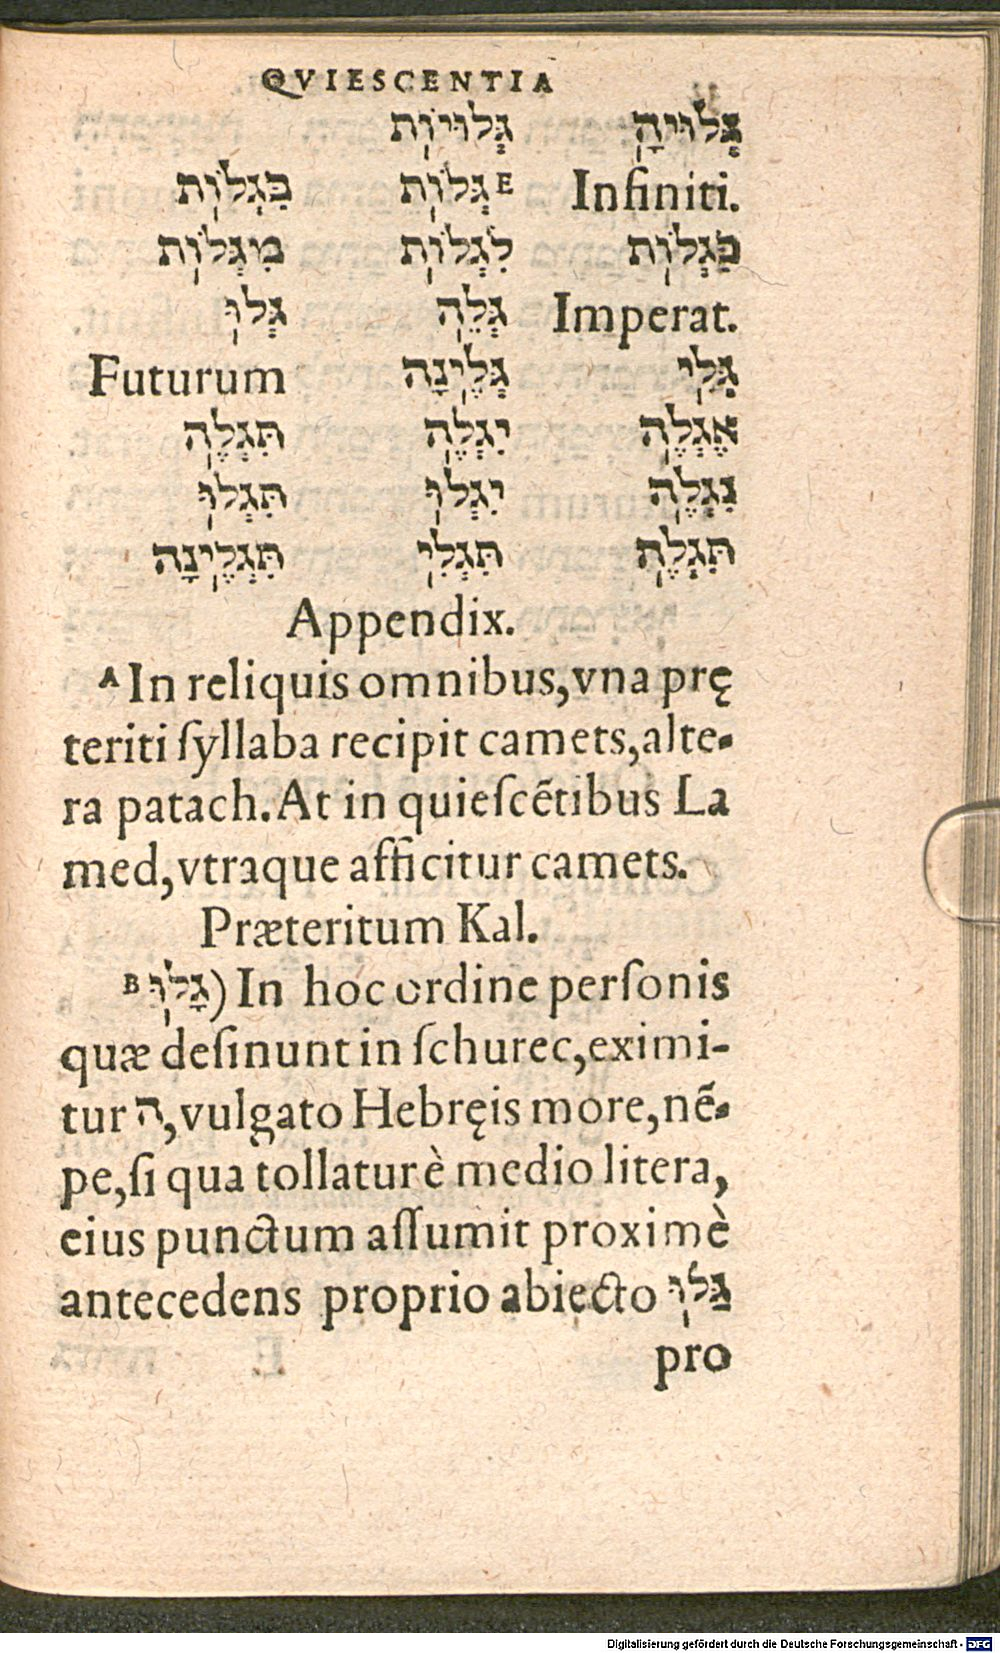 QVIESCENTIA
גְּלוּיָה גְּלוּיוֹת
Infiniti. ᴱ גְּלוֹת בִּגְלוֹת
כַּגְלוֹת לִגְלוֹת מִגְּלוֹת
Imperat. גְּלֵה גְּלוּ
גְּלִי גְּלֶינָה Futurum
אֶגְלֶה יִגְלֶה תִּגְלֶה
נִגְלֶה יִגְלוּ תִּגְלוּ
תִּגְלֶה תִּגְלִי תִּגְלֶינָה
Appendix.
ᴬ In reliquis omnibus, vna prę
teriti ſyllaba recipit camets, alte-
ra patach. At in quieſcẽtibus La
med, vtraque afficitur camets.
Præteritum Kal.
ᴮ גָּלוּ) In hoc ordine perſonis
quæ deſinunt in ſchurec, eximi-
tur ה, vulgato Hebręis more, nẽ-
pe, ſi qua tollatur è medio litera,
eius punctum aſſumit proximè
antecedens proprio abiecto גַּלוּ
pro
Digitalisierung gefördert durch die Deutsche Forschungsgemeinschaft - DFG